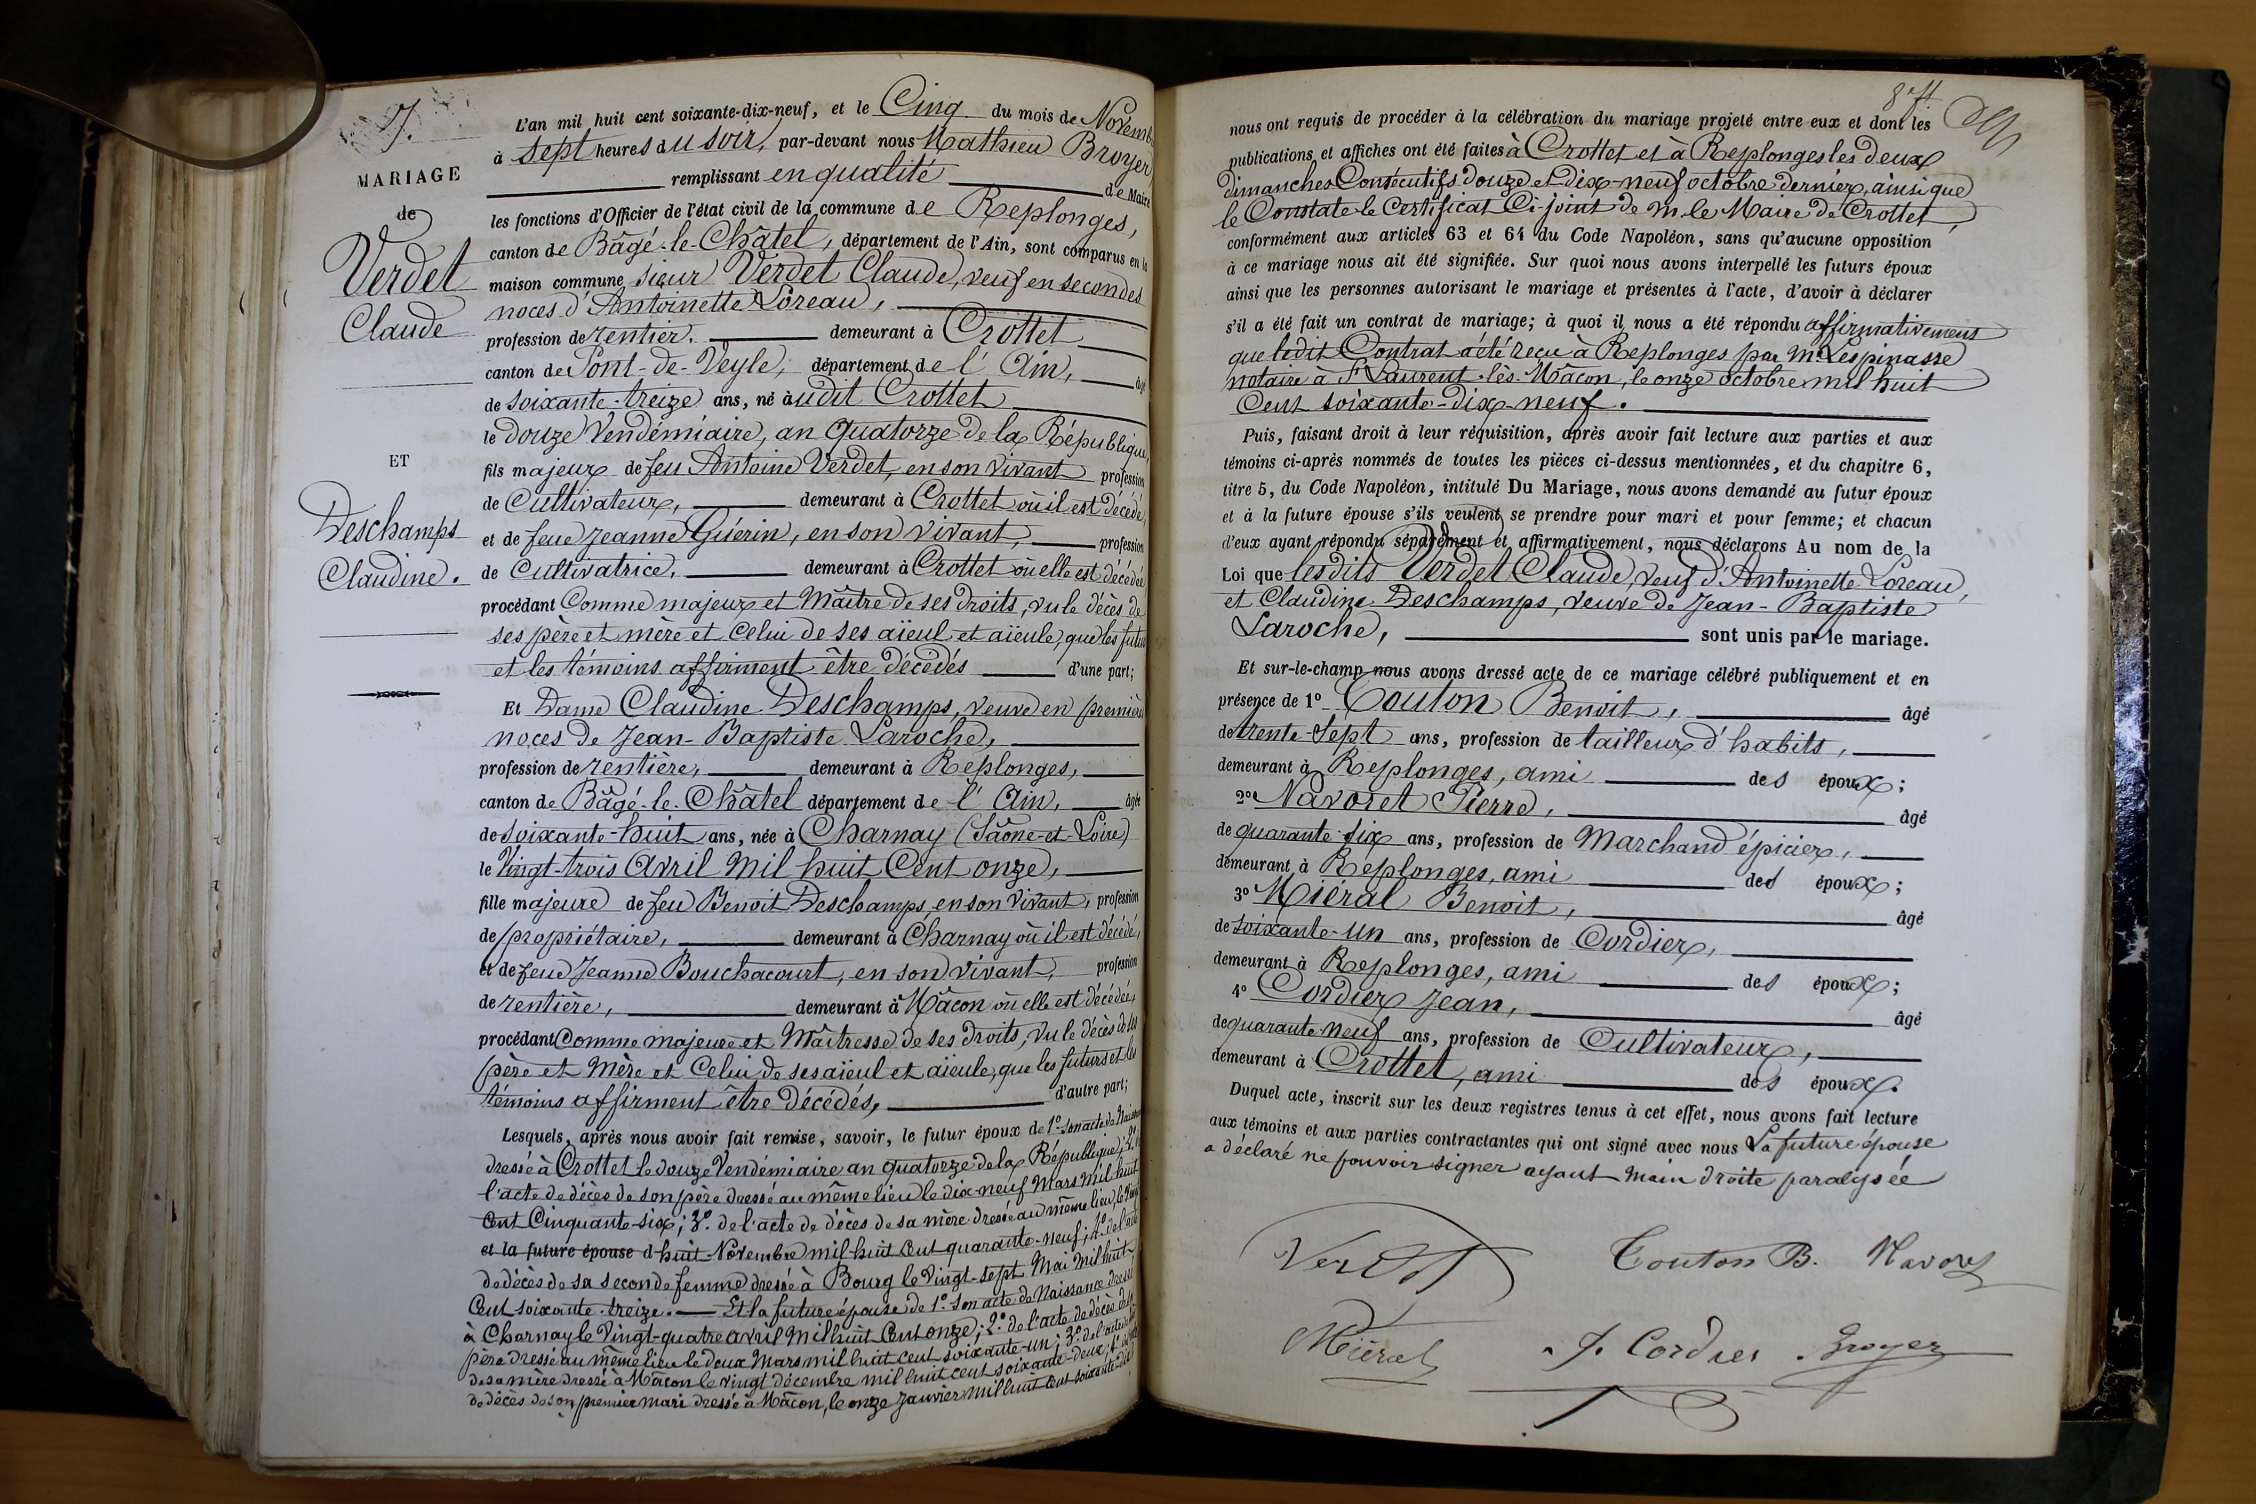 7.
MARIAGE
de
Verdet
Claude
ET
Deschamps
Claudine.
L'an mil huit cent soixante-dix-neuf, et le Cinq du mois de Novemb
à sept heures du soir, par-devant nous Mathieu Broyer,
remplissant en qualité de Maire
les fonctions d'Officier de l'état civil de la commune de Replonges,
canton de Bâgé-le-Châtel, département de l'Ain, sont comparus en la
maison commune sieur Verdet Claude, veuf en secondes
noces d'Antoinette Loreau,
profession de rentier. demeurant à Crottet
canton de Pont-de-Veyle, département de l'Ain, âgé
de soixante-treize ans, né audit Crottet
le douze Vendémiaire, an quatorze de la République,
fils majeur de feu Antoine Verdet, en son vivant profession
de Cultivateur, demeurant à Crottet où il est décédé,
et de feue Jeanne Guérin, en son vivant, profession
de Cultivatrice, demeurant à Crottet où elle est décédée
procédant Comme majeur et Maître de ses droits, vu le décès de
ses père et mère et celui de ses aïeul et aïeule, que les futurs
et les témoins affirment être décédés d'une part;
Et Dame Claudine Deschamps, veuve en premières
noces de Jean-Baptiste Laroche,
profession de rentière, demeurant à Replonges,
canton de Bâgé-le-Châtel département de l'Ain, âgée
de soixante-huit ans, née à Charnay (Saône-et-Loire)
le Vingt-trois Avril Mil huit Cent onze,
fille majeure de feu Benoit Deschamps, en son vivant, profession
de propriétaire, demeurant à Charnay où il est décédé,
et de feue Jeanne Bouchacourt, en son vivant, profession
de rentière, demeurant à Mâcon où elle est décédée,
procédant Comme majeure et Maîtresse de ses droits, vu le décès de ses
père et Mère et Celui de ses aïeul et aïeule, que les futurs et les
témoins affirment être décédés, d'autre part;
Lesquels, après nous avoir fait remise, savoir, le futur époux de 1º son acte de Naissance
dressé à Crottet le douze Vendémiaire an quatorze de la République; 2º
l'acte de décès de son père dressé au même lieu le dix-neuf Mars Mil huit
Cent Cinquante-six; 3º de l'acte de décès de sa mère dressé au même lieu, le Vingt
et la future épouse d huit Novembre mil huit Cent quarante-neuf; 4º de l'acte
de décès de sa seconde femme dressé à Bourg le Vingt-sept Mai Mil huit
Cent soixante-treize. Et la future épouse de 1º son acte de Naissance dressé
à Charnay le Vingt-quatre avril Mil huit Cent onze; 2º de l'acte de décès de son
père dressé au même lieu le deux Mars mil huit cent soixante-un; 3º de l'acte de décès
de sa mère dressé à Mâcon le vingt décembre mil huit cent soixante-deux; 4º de l'acte
de décès de son premier mari dressé à Mâcon, le onze Janvier Mil huit Cent soixante-dix
nous ont requis de procéder à la célébration du mariage projeté entre eux et dont les
publications et affiches ont été faites à Crottet et à Replonges les deux
dimanches Consécutifs douze et dix-neuf octobre dernier, ainsi que
le Constate le Certificat Ci-joint de M. le Maire de Crottet,
conformément aux articles 63 et 64 du Code Napoléon, sans qu'aucune opposition
à ce mariage nous ait été signifiée. Sur quoi nous avons interpellé les futurs époux
ainsi que les personnes autorisant le mariage et présentes à l'acte, d'avoir à déclarer
s'il a été fait un contrat de mariage; à quoi il nous a été répondu affirmativement
que ledit Contrat a été reçu à Replonges par Me Lespinasse
notaire à St Laurent-lès-Mâcon, le onze octobre mil huit
Cent soixante-dix-neuf.
Puis, faisant droit à leur réquisition, après avoir fait lecture aux parties et aux
témoins ci-après nommés de toutes les pièces ci-dessus mentionnées, et du chapitre 6,
titre 5, du Code Napoléon, intitulé Du Mariage, nous avons demandé au futur époux
et à la future épouse s'ils veulent se prendre pour mari et pour femme; et chacun
d'eux ayant répondu séparément et affirmativement, nous déclarons Au nom de la
Loi que lesdits Verdet Claude, veuf d'Antoinette Loreau,
et Claudine Deschamps, veuve de Jean-Baptiste
Laroche, sont unis par le mariage.
Et sur-le-champ nous avons dressé acte de ce mariage célébré publiquement et en
présence de 1º Couton Benoit, âgé
de trente-sept ans, profession de tailleur d'habits,
demeurant à Replonges, ami des époux;
2º Navoret Pierre, âgé
de quarante-six ans, profession de Marchand épicier,
demeurant à Replonges, ami des époux;
3º Miéral Benoit, âgé
de soixante-un ans, profession de Cordier,
demeurant à Replonges, ami des époux;
4º Cordier Jean, âgé
de quarante-neuf ans, profession de Cultivateur,
demeurant à Crottet, ami des époux.
Duquel acte, inscrit sur les deux registres tenus à cet effet, nous avons fait lecture
aux témoins et aux parties contractantes qui ont signé avec nous La future épouse
a déclaré ne pouvoir signer ayant main droite paralysée
Verdet Couton B. Navoret
Miéral J. Cordier Broyer